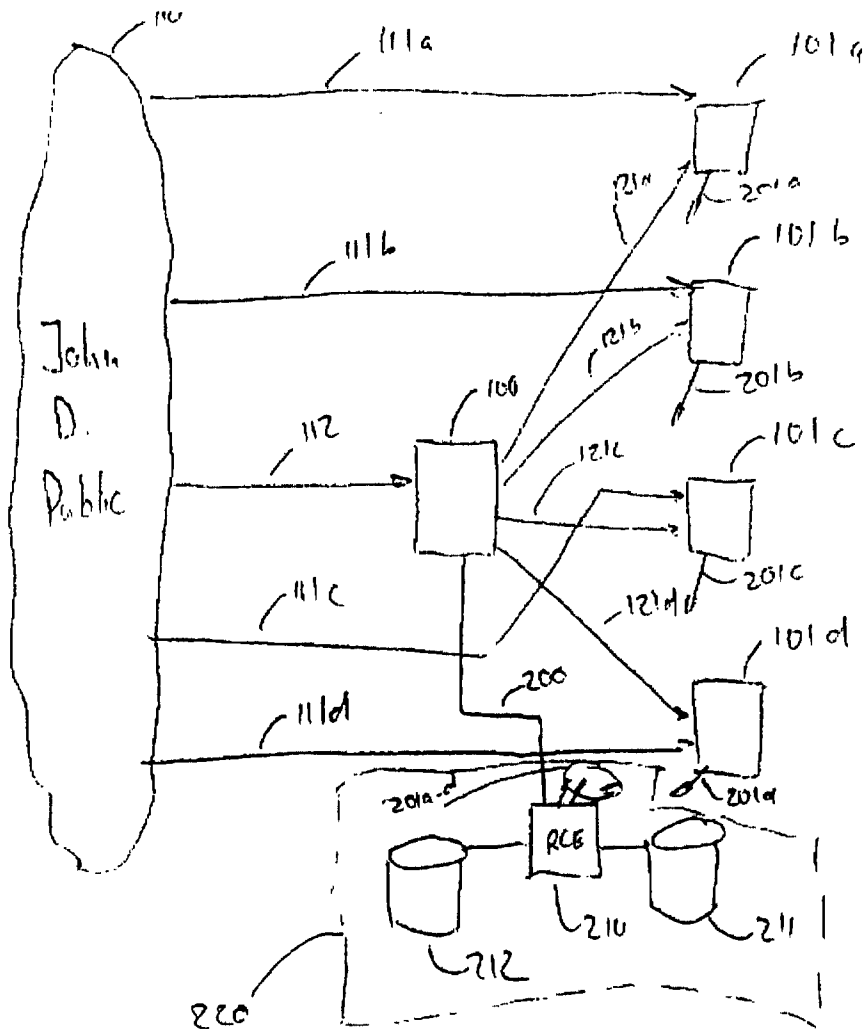 110
111a
101a
121a
201a
111b
101b
121b
201b
John
D.
Public
100
112
101c
121c
201c
111c
121d
101d
200
111d
201a-d
201d
RCE
210
211
212
220